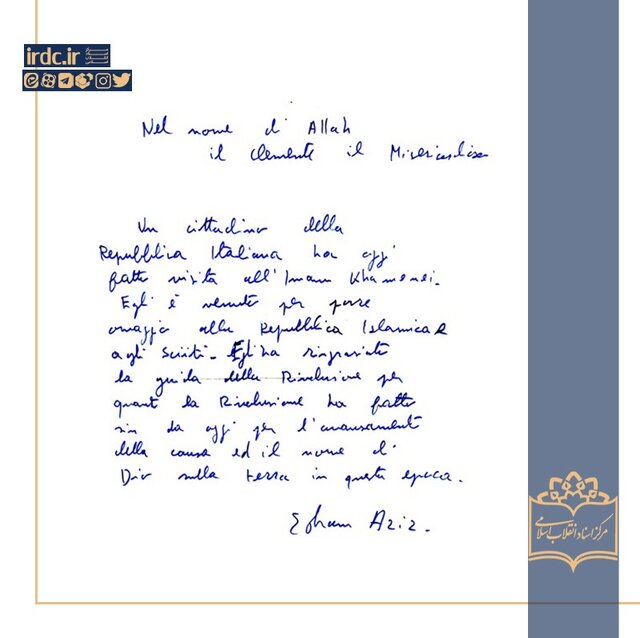 irdc.ir
Nel nome d' Allah
il Clemente il Misericordioso
Un cittadino della
Repubblica Italiana ha oggi
fatto visita all'Imam Khamenei.
Egli è venuto per porre
omaggio alla Repubblica Islamica e
agli Sciiti. Egli ha ringraziato
la guida della Rivoluzione per
quanto la Rivoluzione ha fatto
sin da oggi per l'avanzamento
della causa ed il nome di
Dio sulla terra in questa epoca.
Aziz.
مرکز اسناد انقلاب اسلامی